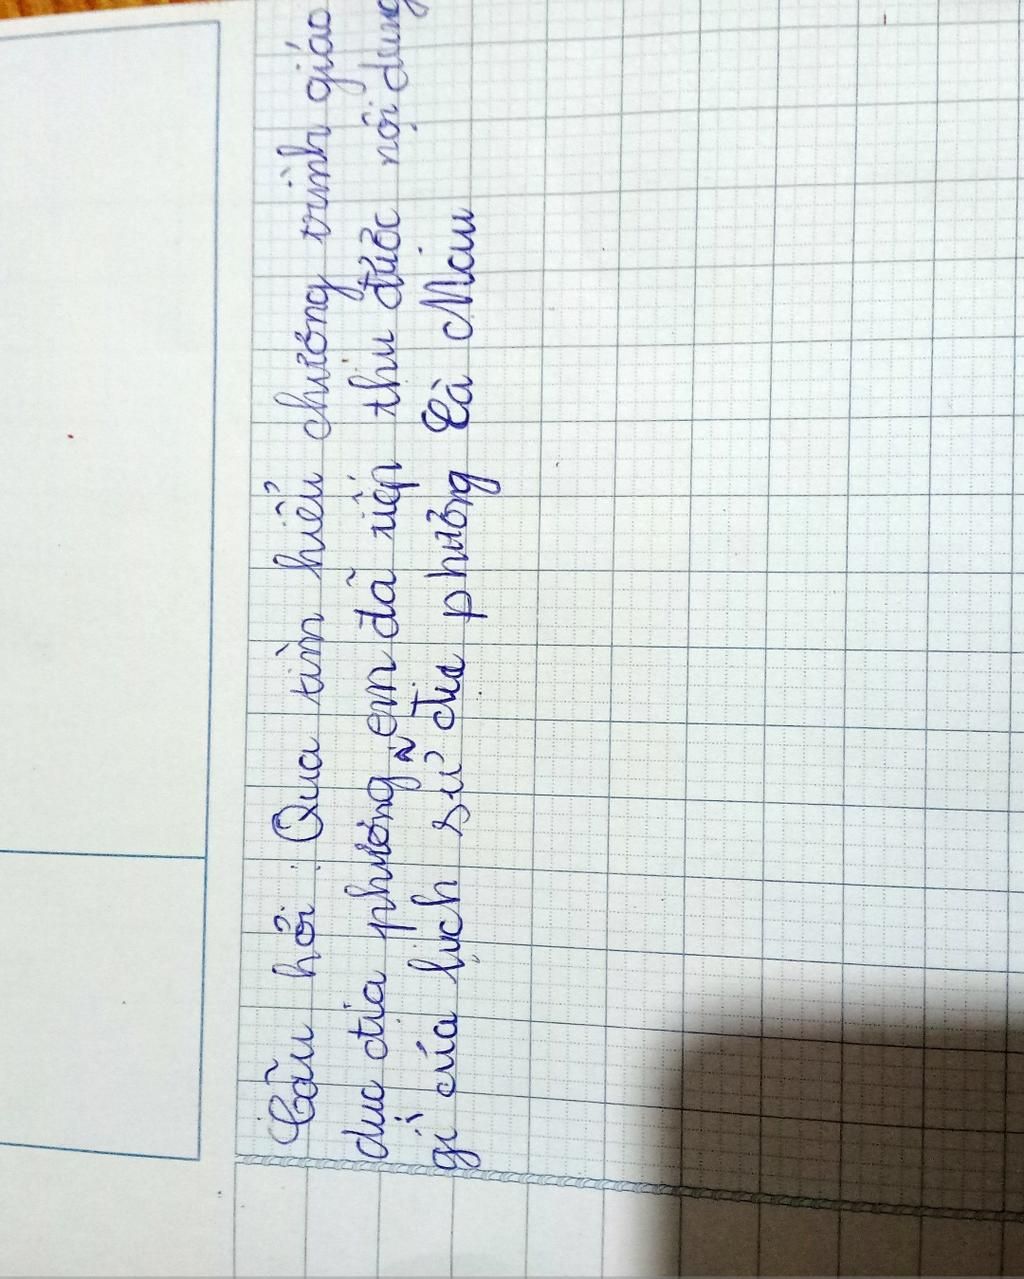 Câu hỏi: Qua tìm hiểu chương trình giáo
dục địa phương, em đã tiếp thu được nội dung
gì của lịch sử địa phương Cà Mau